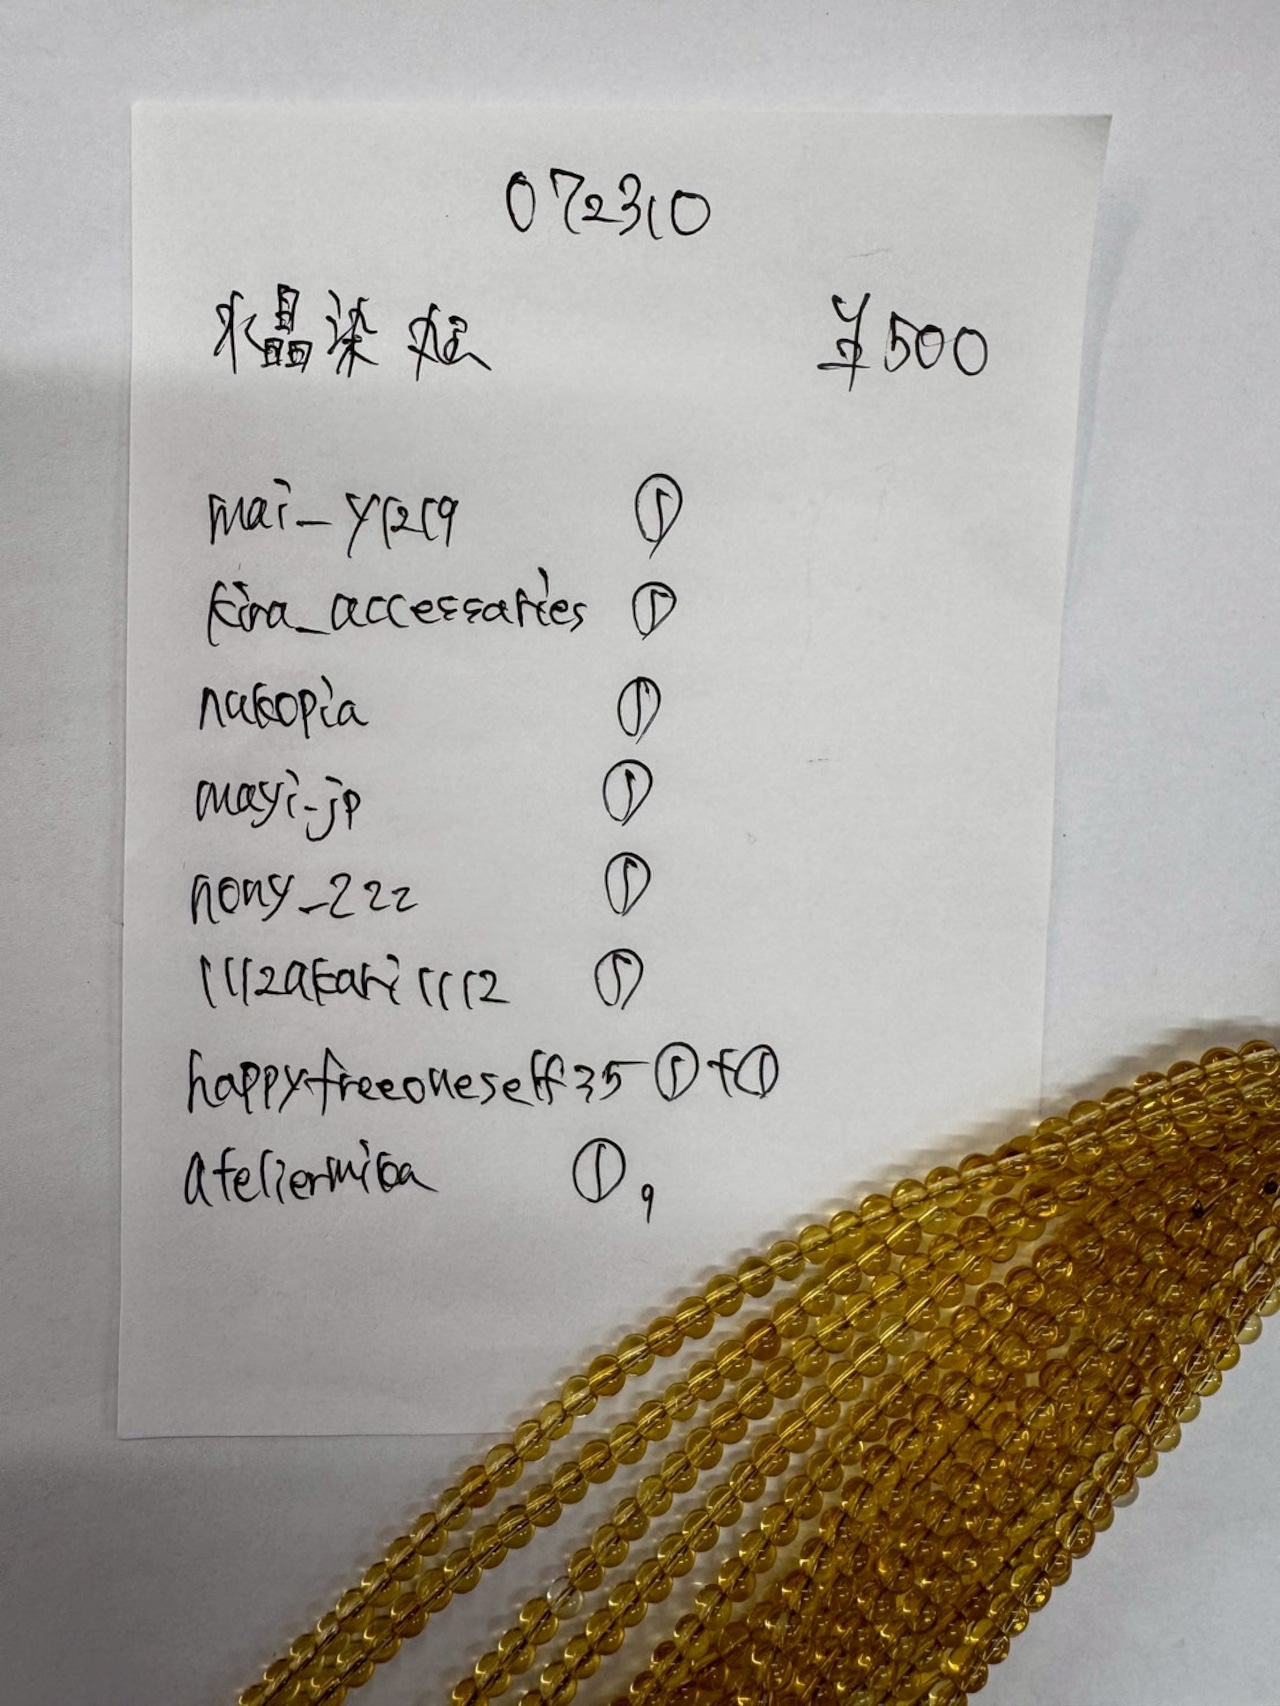 072310
水晶染処 ¥500
mai_y1219 ①
kira_accessaries ①
nakopia ①
mayi-jp ①
nony_222 ①
1112akari1112 ①
happyfreeoneself35 ①+①
ateliermika ① 9